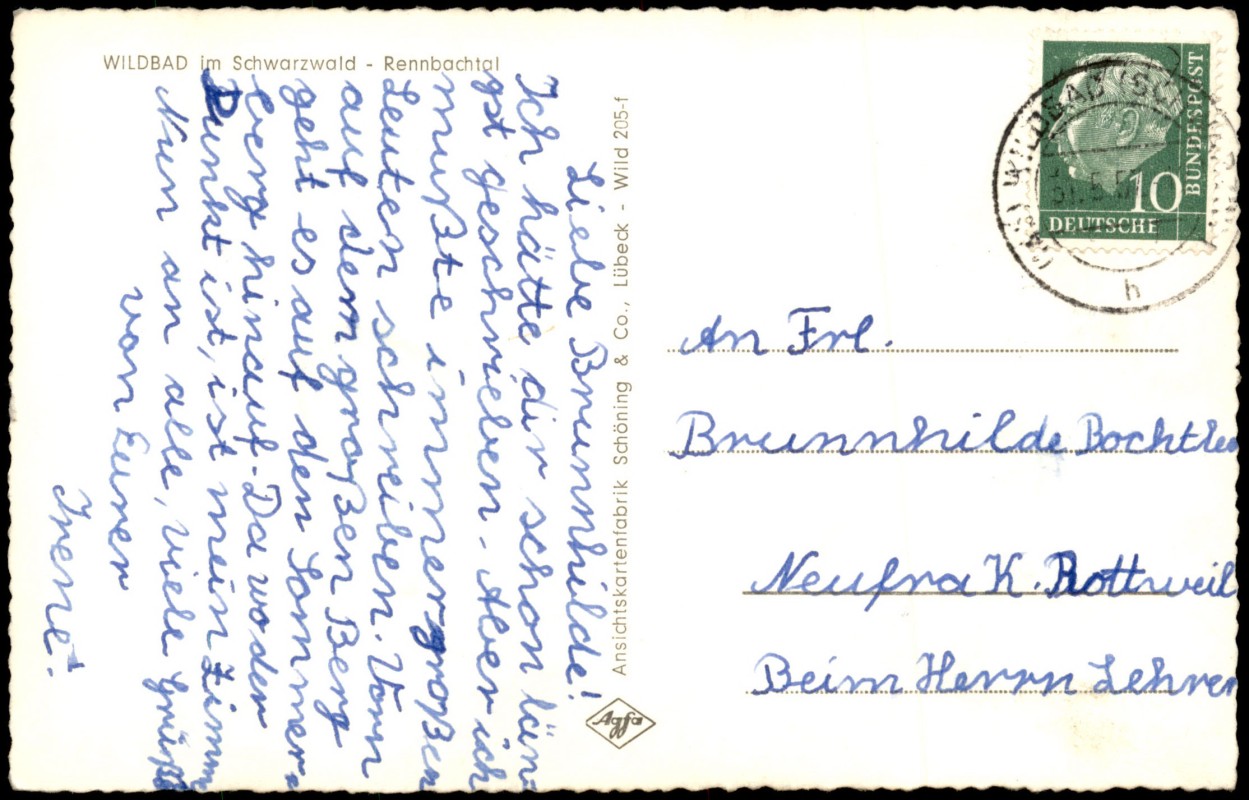 WILDBAD im Schwarzwald - Rennbachtal
Liebe Brunnhilde!
Ich hätte dir schon län-
gst geschrieben. Aber ich
mußte immer großen
Leuten schreiben. Vorn
auf dem großen Berg
geht es auf den Sommer-
berg hinauf. Da wo der
Punkt ist, ist mein Zimmer
Nun an alle, viele Grüße
von Eurer
Irene.
Ansichtskartenfabrik Schöning & Co., Lübeck - Wild 205-f
Agfa
DEUTSCHE
BUNDESPOST
10
WILDBAD (SCHWARZW
h
An Frl.
Brunnhilde Bochtler
Neufra K. Rottweil
Beim Herrn Lehrer